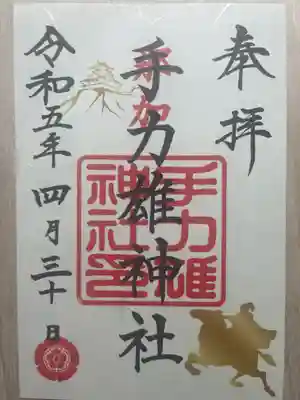 奉拝
手力雄神社
手力雄
神社印
令和五年 四月三十日